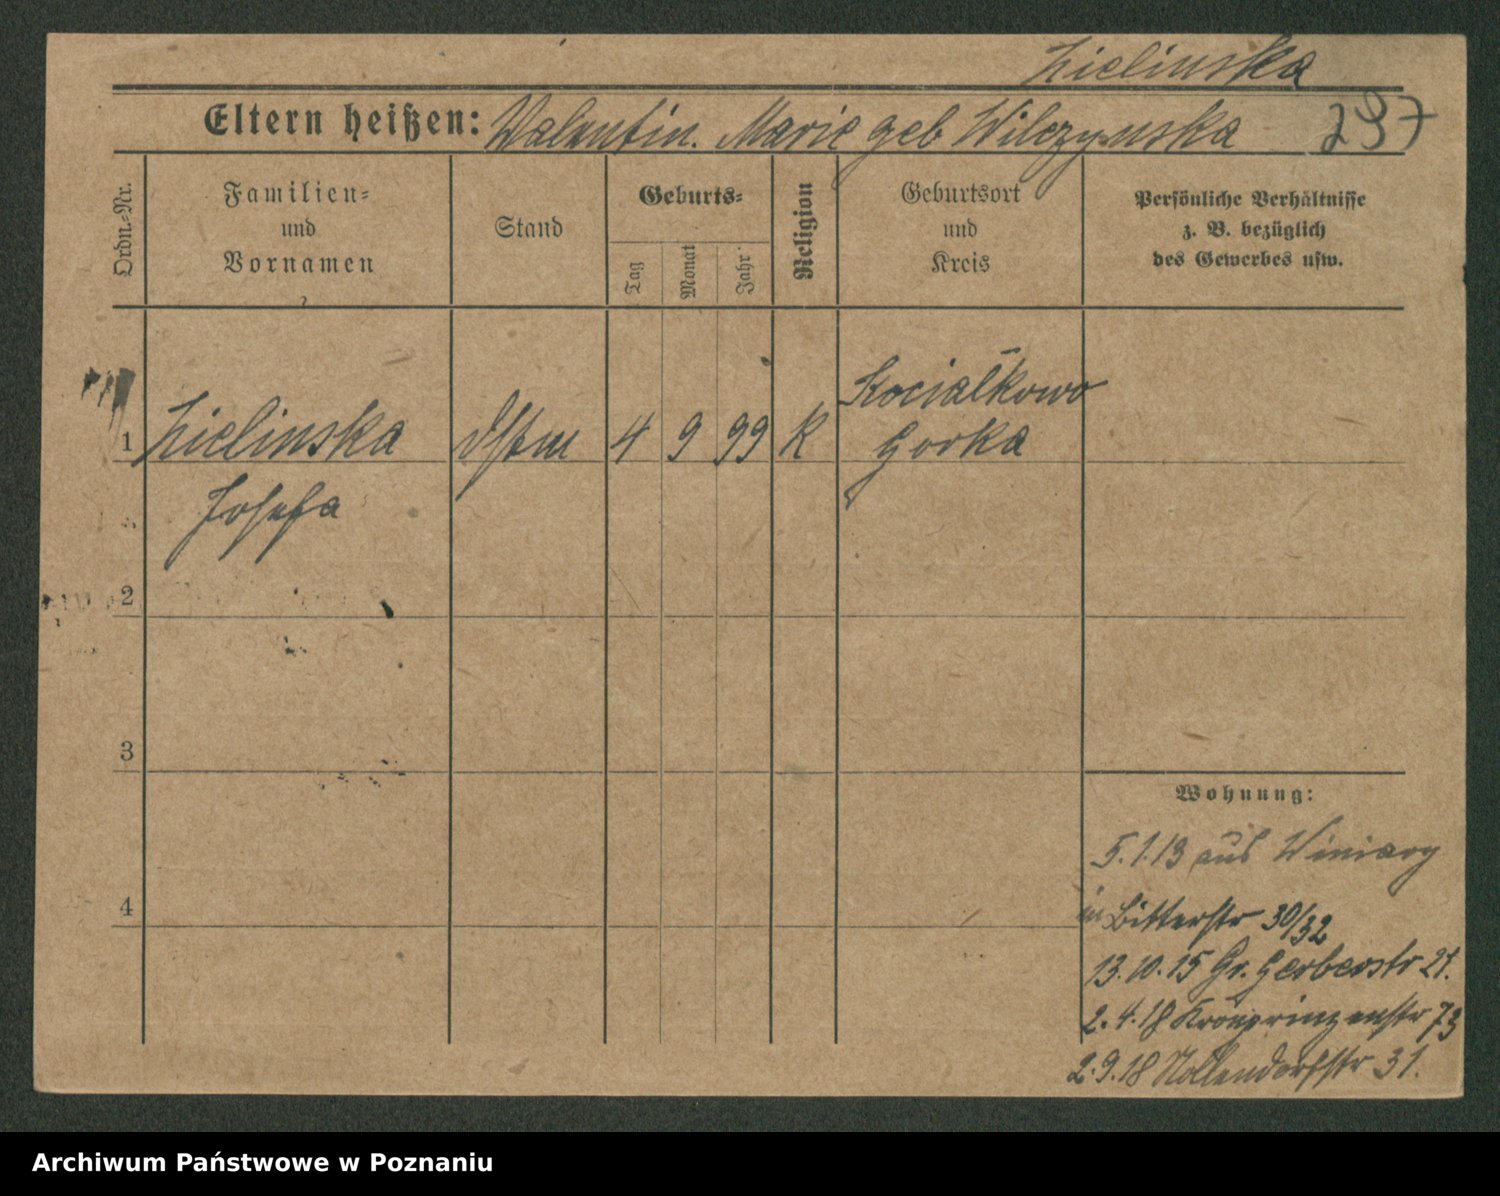 Zielinska
Eltern heißen: Valentin. Marie geb Wilczynska 297
Ordn.-Nr.
Familien-
und
Vornamen
Stand
Geburts-
Tag
Monat
Jahr
Religion
Geburtsort
und
Kreis
Persönliche Verhältnisse
z. B. bezüglich
des Gewerbes usw.
Kocialkowo
1 Zielinska Dstm 4 9 99 K Gorka
Josefa
2
3
Wohnung:
5.1.13 aus Winiary
4
in Bitterstr 30/32
13.10.15 Gr. Gerberstr 21.
2.4.18 Kronprinzenstr 73
2.9.18 Nollendorfstr 31.
Archiwum Państwowe w Poznaniu